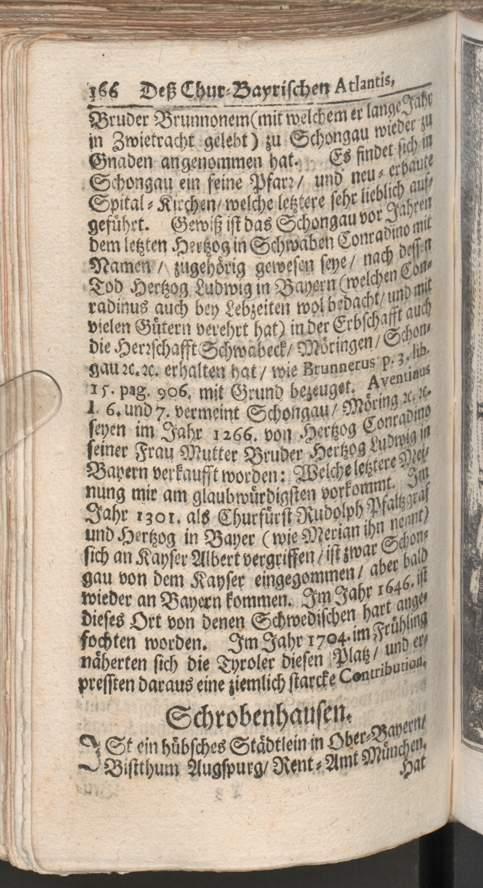 166 Deß Chur-Bayrischen Atlantis,
Bruder Brunnonem (mit welchem er lange Jahr
in Zwietracht gelebt) zu Schongau wieder zu
Gnaden angenommen hat. Es findet sich in
Schongau ein feine Pfarr/ und neu-erbaute
Spital-Kirchen/ welche letztere sehr lieblich auf-
geführt. Gewiß ist das Schongau vor Jahren
dem letzten Hertzog in Schwaben Conradino mit
Namen/ zugehörig gewesen seye/ nach dessen
Tod Hertzog Ludwig in Bayern (welchen Con-
radinus auch bey Lebzeiten wol bedacht/ und mit
vielen Gütern verehrt hat) in der Erbschafft auch
die Herrschafft Schwabeck/ Möringen/ Schon-
gau ꝛc. ꝛc. erhalten hat/ wie Brunnerus p. 3. lib.
15. pag. 906. mit Grund bezeuget. Aventinus
l. 6. und 7. vermeint Schongau/ Möring ꝛc. ꝛc.
seyen im Jahr 1266. von Hertzog Conradino
seiner Frau Mutter Bruder Hertzog Ludwig in
Bayern verkaufft worden: Welche letztere Mei-
nung mir am glaubwürdigsten vorkommt. Im
Jahr 1301. als Churfürst Rudolph Pfaltzgraf
und Hertzog in Bayer (wie Merian ihn nennt)
sich an Kayser Albert vergriffen/ ist zwar Schon-
gau von dem Kayser eingegommen/ aber bald
wieder an Bayern kommen. Im Jahr 1646. ist
dieses Ort von denen Schwedischen hart ange-
fochten worden. Im Jahr 1704. im Frühling
näherten sich die Tyroler diesen Platz/ und er-
pressten daraus eine ziemlich starcke Contribution.
Schrobenhausen.
ISt ein hübsches Städtlein in Ober-Bayern/
Bistthum Augspurg/ Rent-Amt München.
Hat